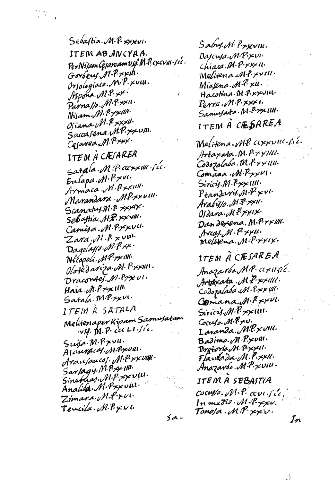 Sebastia. M.P. xxxvi.
ITEM AB ANCYRA.
Per Nisam Caesaream usq; M.P. cxcviii. sic.
Gorbeus. M.P. xxiii.
Orsologiaco. M.P. xviii.
Aspona. M.P. xx.
Parnasso. M.P. xxii.
Nisam. M.P. xxiiii.
Osiana. M.P. xxxii.
Saccasena. M.P. xxviii.
Caesarea. M.P. xxx.
ITEM À CÆSAREA
Satala. M.P. cccxxiiii. sic.
Eulepa. M.P. xvi.
Armiaca. M.P. xxiiii.
Marandara. M.P. xxviii.
Scanatus. M.P. xxxix.
Sebastia. M.P. xxviii.
Camisa. M.P. xxvii.
Zara. M.P. xviii.
Dagalasso. M.P. xx.
Nicopoli. M.P. xxiiii.
Olotoedariza. M.P. xxiiii.
Dracontes. M.P. xxvi.
Haia. M.P. xxiiii.
Satala. M.P. xxvi.
ITEM À SATALA
Melitenam per Ripam Samosatam
usq. M.P. cccxli. sic.
Suisa. M.P. xvii.
Arauracos. M.P. xviii.
Carsagis. M.P. xxiiii.
Sinervas. M.P. xxviii.
Analiba. M.P. xxviii.
Zimara. M.P. xvi.
Teucila. M.P. xvi.
Sa-
Sabus. M.P. xxviii.
Dascusa. M.P. xvi.
Chiaca. M.P. xxxii.
Melitena. M.P. xviii.
Miasena. M.P. xii.
Lacotina. M.P. xxviii.
Perre. M.P. xxvi.
Samosata. M.P. xxiiii.
ITEM À CÆSAREA
Melitena. M.P. ccxxviii. sic.
Artaxata. M.P. xxiiii.
Codozalaba. M.P. xxiiii.
Comana. M.P. xxvi.
Siricis. M.P. xxiiii.
Ptandaris. M.P. xvi.
Arabisso. M.P. xxii.
Osdara. M.P. xxiix.
Dandexena. M.P. xxiiii.
Arcas. M.P. xxii.
Melitena. M.P. xxiix.
ITEM À CÆSAREA
Anazarbo. M.P. ccxi. sic.
Artaxata. M.P. xxiiii.
Codozalaba. M.P. xxiiii.
Comana. M.P. xxvi.
Siricis. M.P. xxiiii.
Cocuso. M.P. xv.
Laranda. M.P. xviii.
Badimo. M.P. xviii.
Praetorio. M.P. xxii.
Flaviada. M.P. xxii.
Anazarbo. M.P. xviii.
ITEM À SEBASTIA
Cocuso. M.P. ccvi. sic.
In medio. M.P. xxv.
Tonosa. M.P. xxv.
In